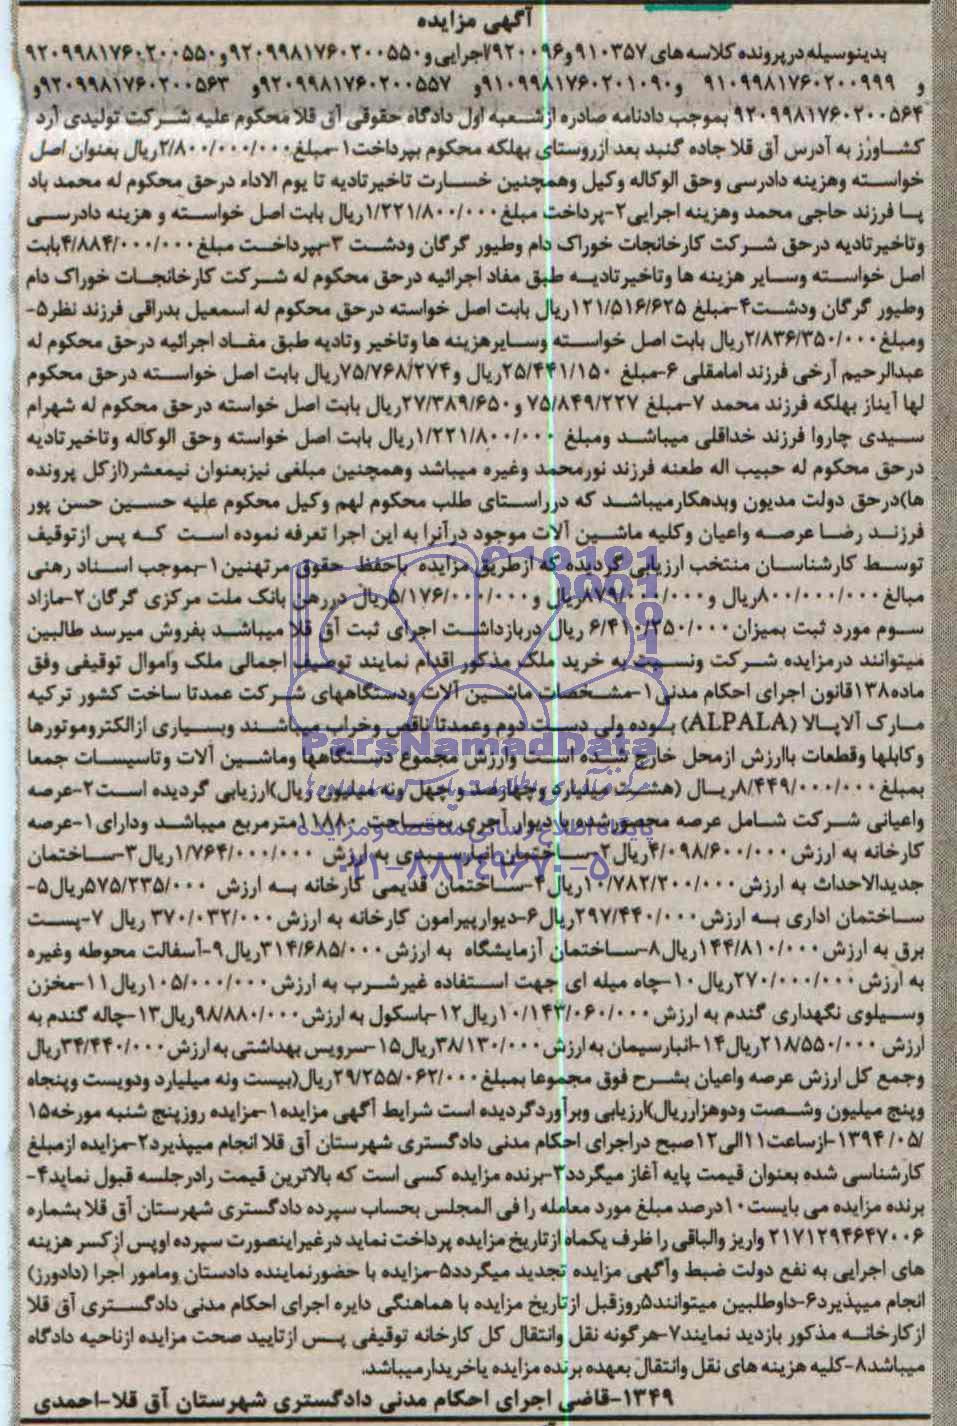 آگهی مزایده
بدینوسیله در پرونده کلاسه های ۹۱۰۳۵۷ و ۷۹۲۰۰۹۶ اجرایی و ۹۲۰۹۹۸۱۷۶۰۲۰۰۵۵۰ و ۹۲۰۹۹۸۱۷۶۰۲۰۰۵۵۰
و ۹۱۰۹۹۸۱۷۶۰۲۰۰۹۹۹ و ۹۱۰۹۹۸۱۷۶۰۲۰۱۰۹۰ و ۹۲۰۹۹۸۱۷۶۰۲۰۰۵۵۷ و ۹۲۰۹۹۸۱۷۶۰۲۰۰۵۶۳ و
۹۲۰۹۹۸۱۷۶۰۲۰۰۵۶۴ بموجب دادنامه صادره از شعبه اول دادگاه حقوقی آق قلا محکوم علیه شرکت تولیدی آرد
کشاورز به آدرس آق قلا جاده گنبد بعد از روستای بهلکه محکوم بپرداخت ۱-مبلغ ۲/۸۰۰/۰۰۰/۰۰۰ ریال بعنوان اصل
خواسته وهزینه دادرسی وحق الوکاله وکیل وهمچنین خسارت تاخیرتادیه تا یوم الاداء درحق محکوم له محمد باد
پا فرزند حاجی محمد وهزینه اجرایی ۲-پرداخت مبلغ ۱/۲۲۱/۸۰۰/۰۰۰ ریال بابت اصل خواسته و هزینه دادرسی
وتاخیرتادیه درحق شرکت کارخانجات خوراک دام وطیور گرگان ودشت ۳-بپرداخت مبلغ ۴/۸۸۴/۰۰۰/۰۰۰ بابت
اصل خواسته وسایر هزینه ها وتاخیرتادیه طبق مفاد اجرائیه درحق محکوم له شرکت کارخانجات خوراک دام
وطیور گرگان ودشت ۴-مبلغ ۱۲۱/۵۱۶/۶۲۵ ریال بابت اصل خواسته درحق محکوم له اسمعیل بدراقی فرزند نظر ۵-
ومبلغ ۲/۸۳۶/۳۵۰/۰۰۰ ریال بابت اصل خواسته وسایرهزینه ها وتاخیر وتادیه طبق مفاد اجرائیه درحق محکوم له
عبدالرحیم آرخی فرزند امامقلی ۶-مبلغ ۲۵/۴۴۱/۱۵۰ ریال و ۷۵/۷۶۸/۲۷۴ ریال بابت اصل خواسته درحق محکوم
لها آیناز بهلکه فرزند محمد ۷-مبلغ ۷۵/۸۴۹/۲۲۷ و ۲۷/۳۸۹/۶۵۰ ریال بابت اصل خواسته درحق محکوم له شهرام
سیدی چاروا فرزند خداقلی میباشد ومبلغ ۱/۲۲۱/۸۰۰/۰۰۰ ریال بابت اصل خواسته وحق الوکاله وتاخیرتادیه
درحق محکوم له حبیب اله طعنه فرزند نورمحمد وغیره میباشد وهمچنین مبلغی نیزبعنوان نیمعشر(ازکل پرونده
ها)درحق دولت مدیون وبدهکارمیباشد که درراستای طلب محکوم لهم وکیل محکوم علیه حسین حسن پور
فرزند رضا عرصه واعیان وکلیه ماشین آلات موجود درآنرا به این اجرا تعرفه نموده است که پس ازتوقیف
توسط کارشناسان منتخب ارزیابی گردیده که ازطریق مزایده باحفظ حقوق مرتهنین ۱-بموجب اسناد رهنی
مبالغ ۸۰۰/۰۰۰/۰۰۰ ریال و ۸۷۹/۰۰۰/۰۰۰ ریال و ۵/۱۷۶/۰۰۰/۰۰۰ ریال دررهن بانک ملت مرکزی گرگان ۲-مازاد
سوم مورد ثبت بمیزان ۶/۴۱۰/۲۵۰/۰۰۰ ریال دربازداشت اجرای ثبت آق قلا میباشد بفروش میرسد طالبین
میتوانند درمزایده شرکت ونسبت به خرید ملک مذکور اقدام نمایند توصیف اجمالی ملک واموال توقیفی وفق
ماده ۱۳۸ قانون اجرای احکام مدنی ۱-مشخصات ماشین آلات ودستگاههای شرکت عمدتا ساخت کشور ترکیه
مارک آلاپالا (ALPALA) بوده ولی دست دوم وعمدتا ناقص وخراب میباشند وبسیاری ازالکتروموتورها
وکابلها وقطعات باارزش ازمحل خارج شده است وارزش مجموع دستگاهها وماشین آلات وتاسیسات جمعا
بمبلغ ۸/۴۴۹/۰۰۰/۰۰۰ ریال (هشت میلیارد وچهارصد وچهل ونه میلیون ریال)ارزیابی گردیده است ۲-عرصه
واعیانی شرکت شامل عرصه محصورشده با دیوار آجری بمساحت ۱۱۸۸۰ مترمربع میباشد ودارای ۱-عرصه
کارخانه به ارزش ۴/۰۹۸/۶۰۰/۰۰۰ ریال ۲-ساختمان انبارسبدی به ارزش ۱/۷۶۴/۰۰۰/۰۰۰ ریال ۳-ساختمان
جدیدالاحداث به ارزش ۱۰/۷۸۲/۲۰۰/۰۰۰ ریال ۴-ساختمان قدیمی کارخانه به ارزش ۵۷۵/۲۳۵/۰۰۰ ریال ۵-
ساختمان اداری به ارزش ۲۹۷/۴۴۰/۰۰۰ ریال ۶-دیوارپیرامون کارخانه به ارزش ۳۷۰/۰۳۲/۰۰۰ ریال ۷-پست
برق به ارزش ۱۴۴/۸۱۰/۰۰۰ ریال ۸-ساختمان آزمایشگاه به ارزش ۳۱۴/۶۸۵/۰۰۰ ریال ۹-آسفالت محوطه وغیره
به ارزش ۲۷۰/۰۰۰/۰۰۰ ریال ۱۰-چاه میله ای جهت استفاده غیرشرب به ارزش ۱۰۵/۰۰۰/۰۰۰ ریال ۱۱-مخزن
وسیلوی نگهداری گندم به ارزش ۱۰/۱۴۳/۰۶۰/۰۰۰ ریال ۱۲-باسکول به ارزش ۹۸/۸۸۰/۰۰۰ ریال ۱۳-چاله گندم به
ارزش ۲۱۸/۵۵۰/۰۰۰ ریال ۱۴-انبارسیمان به ارزش ۳۸/۱۳۰/۰۰۰ ریال ۱۵-سرویس بهداشتی به ارزش ۳۴/۴۴۰/۰۰۰ ریال
وجمع کل ارزش عرصه واعیان بشرح فوق مجموعا بمبلغ ۲۹/۲۵۵/۰۶۲/۰۰۰ ریال(بیست ونه میلیارد ودویست وپنجاه
وپنج میلیون وشصت ودوهزارریال)ارزیابی وبرآوردگردیده است شرایط آگهی مزایده ۱-مزایده روزپنج شنبه مورخه ۱۵
/۰۵/ ۱۳۹۴-ازساعت ۱۱ الی ۱۲ صبح دراجرای احکام مدنی دادگستری شهرستان آق قلا انجام میپذیرد ۲-مزایده ازمبلغ
کارشناسی شده بعنوان قیمت پایه آغاز میگردد ۳-برنده مزایده کسی است که بالاترین قیمت رادرجلسه قبول نماید ۴-
برنده مزایده می بایست ۱۰ درصد مبلغ مورد معامله را فی المجلس بحساب سپرده دادگستری شهرستان آق قلا بشماره
۲۱۷۱۲۹۴۶۴۷۰۰۶ واریز والباقی را ظرف یکماه ازتاریخ مزایده پرداخت نماید درغیراینصورت سپرده اوپس ازکسر هزینه
های اجرایی به نفع دولت ضبط وآگهی مزایده تجدید میگردد ۵-مزایده با حضورنماینده دادستان ومامور اجرا (دادورز)
انجام میپذیرد ۶-داوطلبین میتوانند ۵ روزقبل ازتاریخ مزایده با هماهنگی دایره اجرای احکام مدنی دادگستری آق قلا
ازکارخانه مذکور بازدید نمایند ۷-هرگونه نقل وانتقال کل کارخانه توقیفی پس ازتایید صحت مزایده ازناحیه دادگاه
میباشد ۸-کلیه هزینه های نقل وانتقال بعهده برنده مزایده یاخریدارمیباشد.
۱۳۴۹-قاضی اجرای احکام مدنی دادگستری شهرستان آق قلا-احمدی
ParsNamadData
پایگاه اطلاع رسانی مناقصه و مزایده
۰۲۱-۸۸۳۴۹۶۷۰-۵